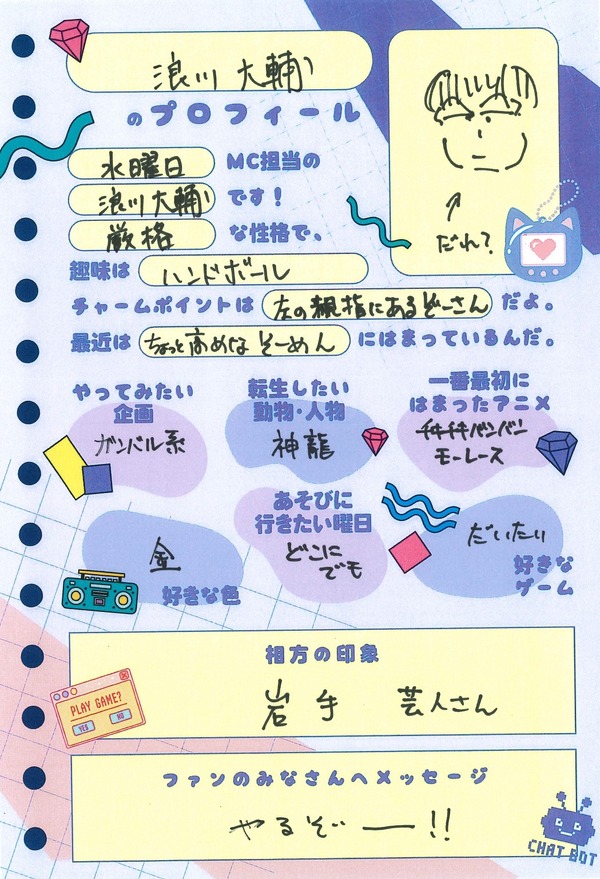 浪川 大輔
のプロフィール
水曜日 MC担当の
浪川大輔 です！
厳格 な性格で、
趣味は ハンドボール
チャームポイントは 左の親指にあるぞーさん だよ。
最近は ちょっと高めなそーめん にはまっているんだ。
だれ?
やってみたい
企画
ガンバル系
転生したい
動物・人物
神龍
一番最初に
はまったアニメ
チキチキバンバン
モーレース
金
好きな色
あそびに
行きたい曜日
どこに
でも
だいたい
好きな
ゲーム
相方の印象
岩手 芸人さん
PLAY GAME?
YES NO
ファンのみなさんへメッセージ
やるぞ──!!
CHAT BOT